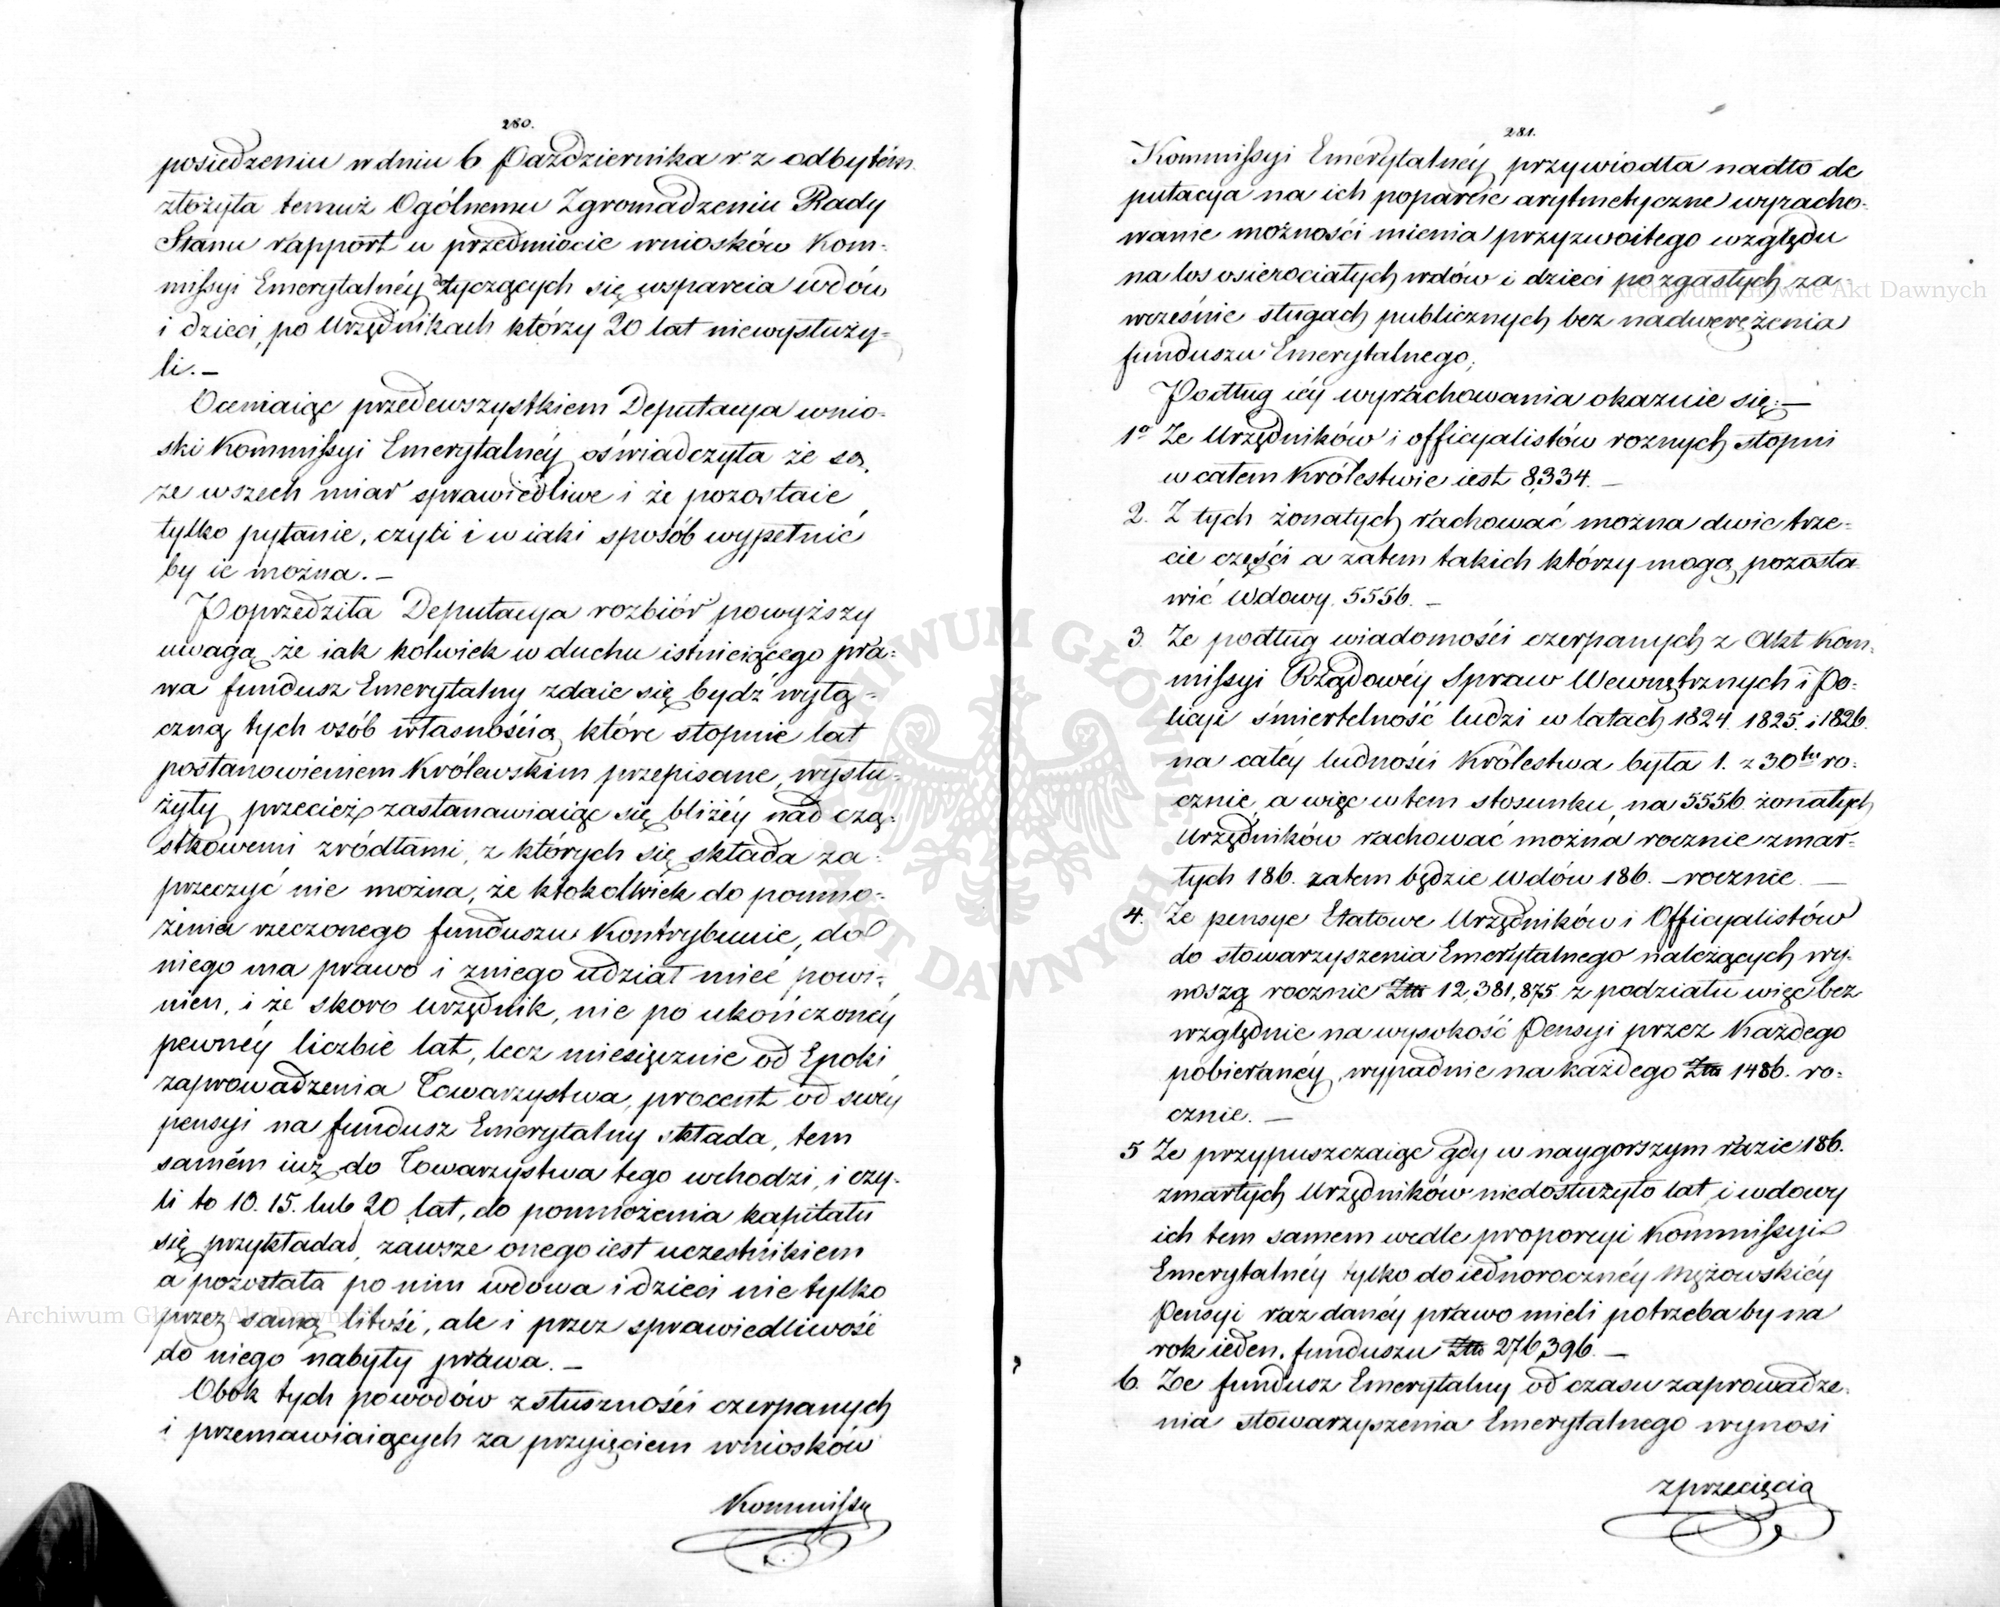 280.
posiedzeniu w dniu 6 Października r z odbytém
złożyła temuż Ogólnemu Zgromadzeniu Rady
Stanu rapport w przedmiocie wniosków Kom-
missyi Emerytalnéy dotyczących się wsparcia wdów
i dzieci, po Urzędnikach którzy 20 lat niewysłuży-
li. —
Oceniaiąc przedewszystkiem Deputacya wnio-
ski Kommissyi Emerytalnéy oświadczyła że są
ze wszech miar sprawiedliwe i że pozostaie
tylko pytanie, czyli i w iaki sposób wypełnić
by ie można. —
Poprzedziła Deputacya rozbiór powyższy
uwagą że iak kolwiek w duchu istnieiącego pra-
wa fundusz Emerytalny zdaie się bydź wyłą-
czną tych osób własnością, które stopnie lat
postanowieniem Królewskim przepisane, wysłu-
żyły przecież zastanawiaiąc się bliżéy nad czą-
stkowemi zródłami, z których się składa za-
przeczyć nie można, że ktokolwiek do pomno-
żenia rzeczonego funduszu Kontrybuuie, do
niego ma prawo i z niego udział mieć powi-
nien, i że skoro urzędnik, nie po ukończonéy
pewnéy liczbie lat, lecz miesięcznie od Epoki
zaprowadzenia Towarzystwa, procent od swéy
pensyi na fundusz Emerytalny składa, tem
samém iuż do Towarzystwa tego wchodzi, i czy-
li to 10. 15. lub 20 lat, do pomnożenia kapitału
się przykładał, zawsze onego iest uczestnikiem
a pozostała po nim wdowa i dzieci nie tylko
przez samą litość, ale i przez sprawiedliwość
do niego nabyły prawa. —
Obok tych powodów z słuszności czerpanych
i przemawiaiących za przyięciem wniosków
Kommissy
281.
Kommissyi Emerytalnéy przywiodła nadto de
putacya na ich poparcie arytmetyczne wyracho-
wanie możności mienia przyzwoitego względu
na los osierociałych wdów i dzieci po zgasłych za-
wcześnie sługach publicznych bez nadwerężenia
funduszu Emerytalnego;
Podług iéy wyrachowania okazuie się: —
1º Ze Urzędników i officyalistów roznych stopni
w całem Królestwie iest 8,334. —
2. Z tych żonatych rachować można dwie trze-
cie części a zatem takich którzy mogą pozosta
wić Wdowy. 5556. —
3. Ze podług wiadomości czerpanych z Akt Kom-
missyi Rządowéy Spraw Wewnętrznych i Po-
licyi śmiertelność ludzi w latach 1824. 1825. i 1826.
na całéy ludności Królestwa była 1. z 30tu ro-
cznie, a więc w tem stosunku, na 5556. żonatych
Urzędników rachować można rocznie zmar-
łych 186. zatem będzie Wdów 186. — rocznie. —
4. Ze pensye Etatowe Urzędników i Officyalistów
do stowarzyszenia Emerytalnego należących wy-
noszą rocznie Złp 12,381,875 z podziału więc bez
względnie na wysokość Pensyi przez Każdego
pobieranéy, wypadnie na każdego Złp 1486. ro-
cznie. —
5 Ze przypuszczaiąc gdy w naygorszym razie 186.
zmarłych Urzędników niedosłużyło lat, i wdowy
ich tem samem wedle proporcyi Kommissyi
Emerytalnéy tylko do iednorocznéy Mężowskiéy
Pensyi raz danéy prawo mieli potrzeba by na
rok ieden. funduszu Złp 276,396. —
6. Ze fundusz Emerytalny od czasu zaprowadze-
nia stowarzyszenia Emerytalnego wynosi
z przecięcia
Archiwum Główne Akt Dawnych
Archiwum Główne Akt Dawnych
ARCHIWUM GŁÓWNE AKT DAWNYCH